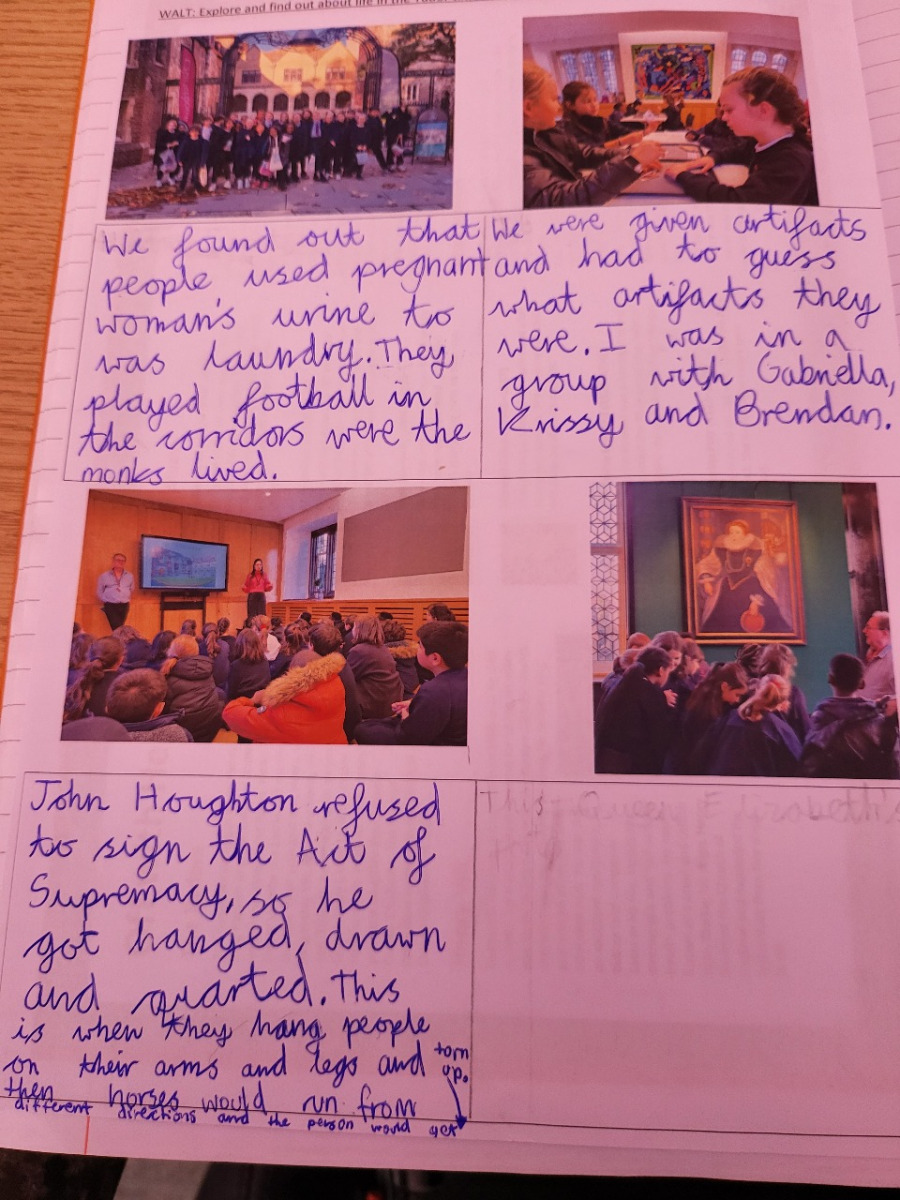 WALT: Explore and find out about life in the
We found out that
people used pregnant
woman's urine to
was laundry. They
played football in
the corridors were the
monks lived.
We were given artifacts
and had to guess
what artifacts they
were. I was in a
group with Gabriella,
Krissy and Brendan.
John Houghton refused
to sign the Act of
Supremacy, so he
got hanged, drawn
and quarted. This
is when they hang people
on their arms and legs and
then horses would run from
different directions and the person would get
torn
up.
This Queen Elizabeth's